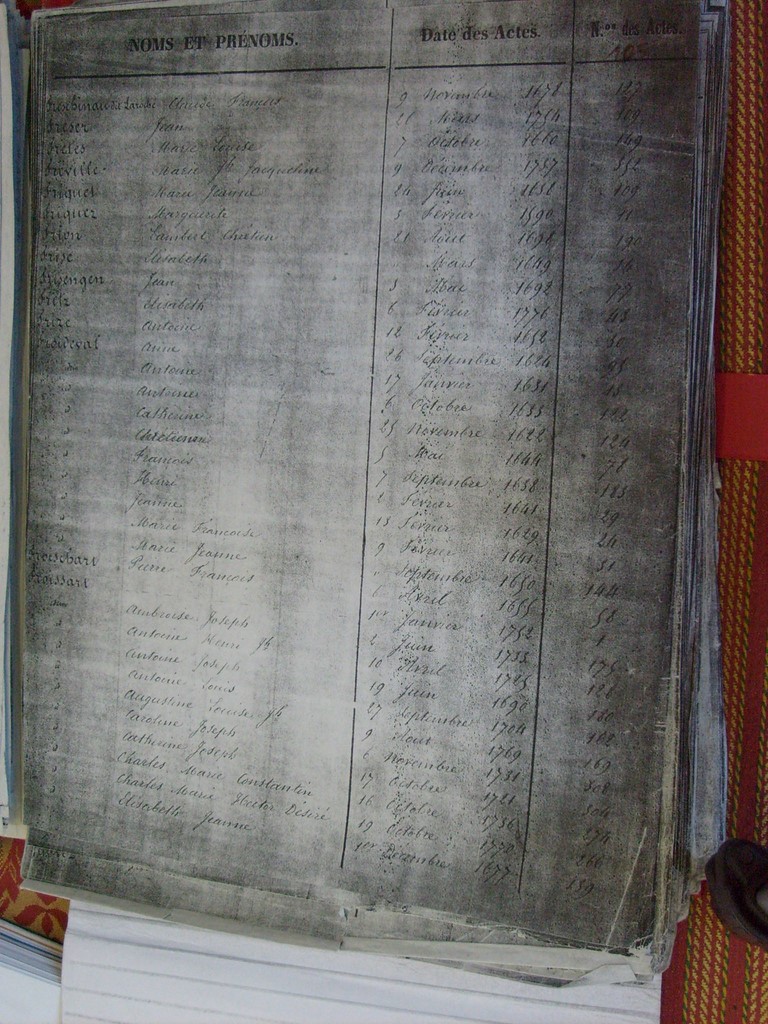 NOMS ET PRÉNOMS. Date des Actes. N.os des Actes.
Claude François 9 Novembre 1678 127
Freser Jean 1764 109
Freles Marie Louise 7 Octobre 1660 149
Fréville Marie Jh Jacqueline 9 Décembre 1757 352
Friquet Marie Jeanne 24 Juin 1658 109
Friquer Marguerite 5 Février 1590 11
Frion Lambert Chretien 21 Août 1698 190
Frise Elisabeth Mars 1649
Jean 3 Mai 1692 77
Elisabeth 6 Février 1776 43
Antoine 12 Février 1652 30
Anne 26 Septembre 1624
" Antoine 17 Janvier 1631 13
" Antoine 6 Octobre 1633 122
" Catherine 25 Novembre 1622 124
" 5 Mai 1644 78
" François 7 Septembre 1638 123
" Henri 2 Février 1641 29
" Jeanne 13 Février 1629 24
" Marie Françoise 9 Février 1641 31
" Marie Jeanne Septembre 1650 144
Froischart Pierre François 6 Avril 1655 58
Froissart 1er Janvier 1752 1
" Ambroise Joseph 2 Juin 1733 175
" Antoine Henri Jh 10 Avril 1725 121
" Antoine Joseph 19 Juin 1690 180
" Antoine Louis 27 Septembre 1704
" Augustine Louise Jh 9 Août 1769 169
" Caroline Joseph 6 Novembre 1731 308
" Catherine Joseph 17 Octobre 1721 304
" Charles Marie Constantin 16 Octobre 1736 274
" Charles Marie Hector Désiré 19 Octobre 266
" Elisabeth Jeanne 1er Décembre 1677 159